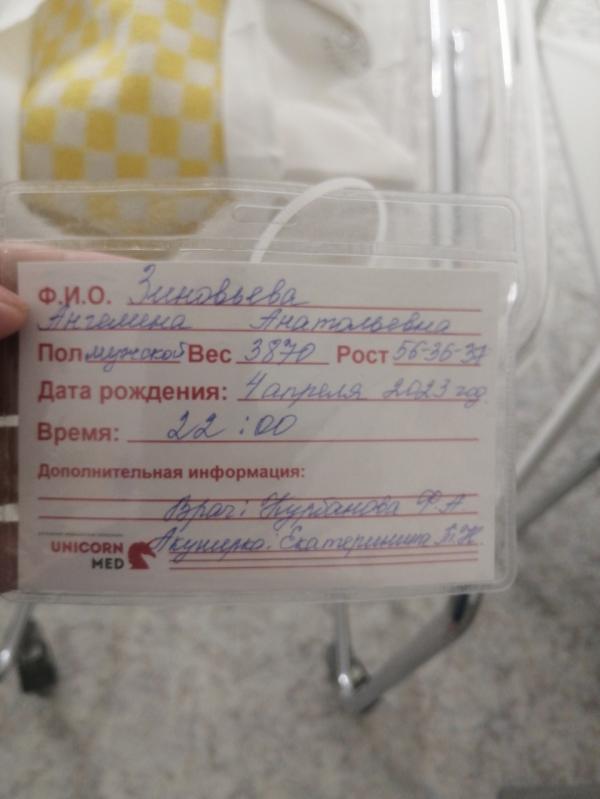 Ф.И.О. Зиновьева
Ангелина Анатольевна
Пол мужской Вес 3870 Рост 56-36-37
Дата рождения: 4 апреля 2023 год
Время: 22:00
Дополнительная информация:
Врач: Курбанова Ф.А
Акушерка: Т.Н.
UNICORN
MED